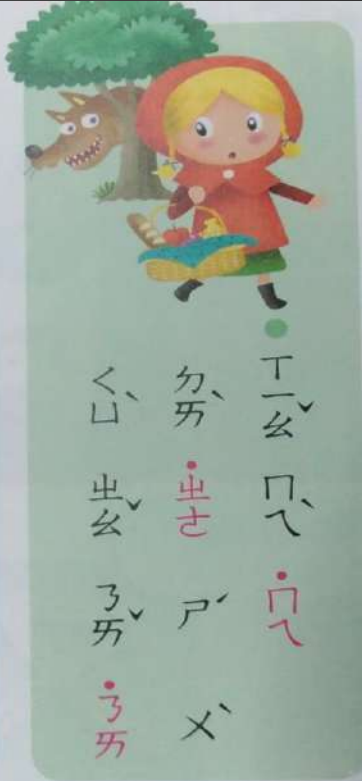 ㄒㄧㄠˇ ㄇㄟˋ ˙ㄇㄟ
ㄉㄞˋ ˙ㄓㄜ ㄕˊ ㄨˋ
ㄑㄩˋ ㄓㄠˇ ㄋㄞˇ ˙ㄋㄞ